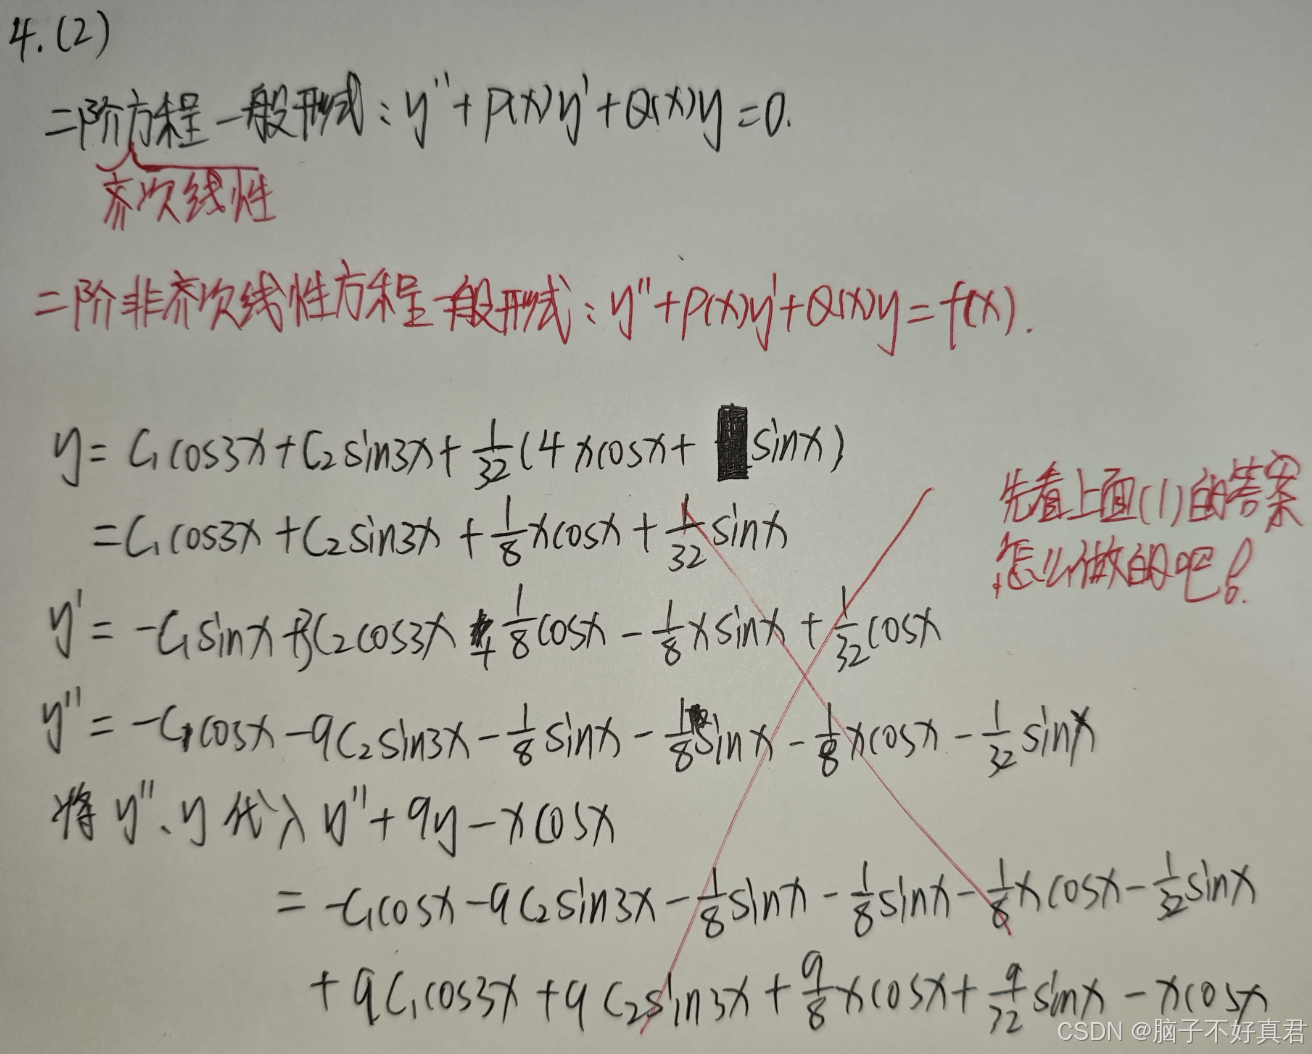 4.(2)
二阶方程一般形式：y''+P(x)y'+Q(x)y=0.
齐次线性
二阶非齐次线性方程一般形式：y''+P(x)y'+Q(x)y=f(x).
y=C₁cos3x+C₂sin3x+1/32(4xcosx+ sinx)
=C₁cos3x+C₂sin3x+1/8xcosx+1/32sinx
先看上面(1)的答案
怎么做的吧！
y'=-C₁sinx+3C₂cos3x+1/8cosx-1/8xsinx+1/32cosx
y''=-C₁cosx-9C₂sin3x-1/8sinx-1/8sinx-1/8xcosx-1/32sinx
将y''、y代入y''+9y-xcosx
=-C₁cosx-9C₂sin3x-1/8sinx-1/8sinx-1/8xcosx-1/32sinx
+9C₁cos3x+9C₂sin3x+9/8xcosx+9/32sinx-xcosx
CSDN @脑子不好真君